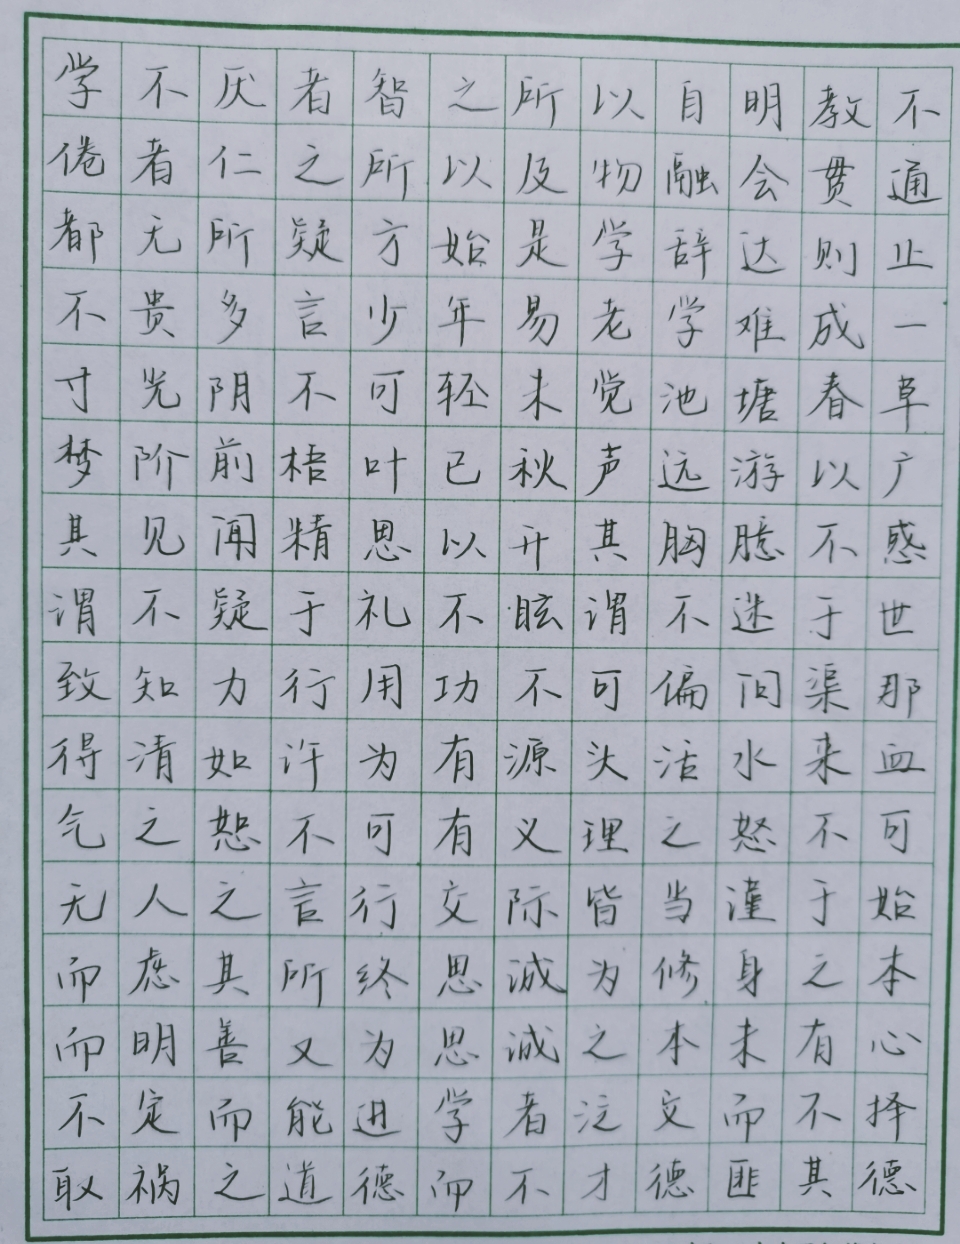 学不厌者智之所以自明教不
倦者仁之所以及物融会贯通
都无所疑方始是学辞达则止
不贵多言少年易老学难成一
寸光阴不可轻未觉池塘春草
梦阶前梧叶已秋声远游以广
其见闻精思以开其胸臆不惑
谓不疑于礼不眩谓不迷于世
致知力行用功不可偏问渠那
得清如许为有源头活水来血
气之怒不可有义理之怒不可
无人之言行交际皆当谨于始
而虑其所终思诚为修身之本
而明善又为思诚之本未有心
不定而能进学者泛交而不择
取祸之道德而不才德匪其德